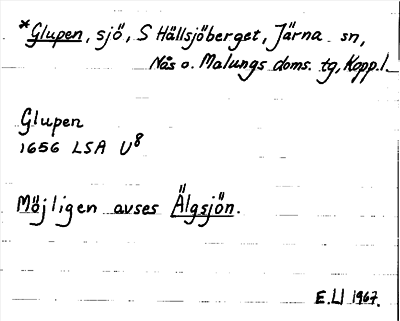 *Glupen, sjö, S Hällsjöberget, Järna sn,
Nås o. Malungs doms. tg, Kopp.l.
Glupen
1656 LSA U8
Möjligen avses Älgsjön.
E.Ll 1967.